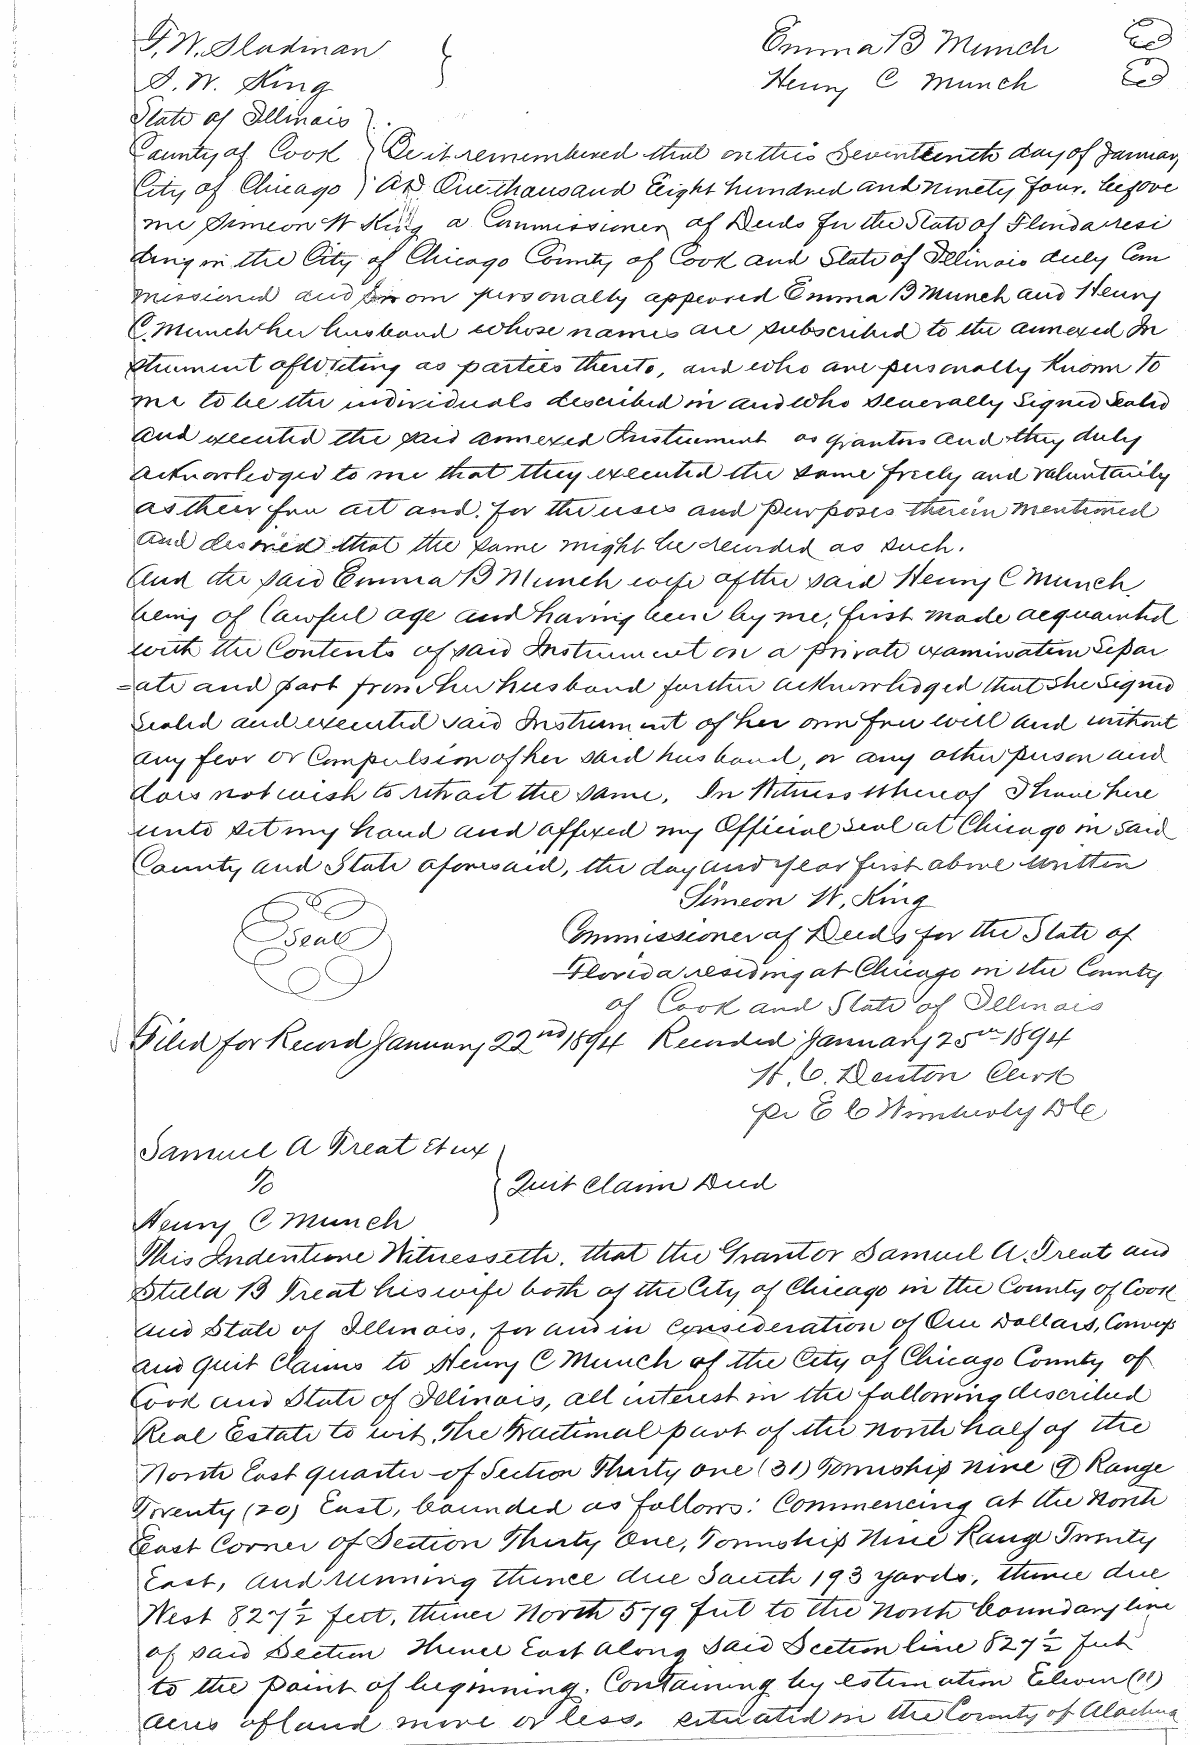 F. W. Sladman } Emma B Munch Seal
S. W. King Henry C Munch Seal
State of Illinois }
County of Cook } Be it remembered that on this Seventeenth day of January
City of Chicago } AD One thousand Eight hundred and ninety four. before
me Simeon W King a Commissioner of Deeds for the State of Florida resi
ding in the City of Chicago County of Cook and State of Illinois duly Com
missioned and Sworn personally appeared Emma B Munch and Henry
C. Munch her husband whose names are subscribed to the annexed In
strument of Writing as parties thereto, and who are personally known to
me to be the individuals described in and who severally Signed Sealed
and executed the said annexed Instrument as grantors and they duly
acknowledged to me that they executed the same freely and voluntarily
as their free act and for the uses and purposes therein mentioned
and desired that the same might be recorded as such.
And the said Emma B Munch wife of the said Henry C Munch
being of lawful age and having been by me, first made acquainted
with the Contents of said Instrument on a private examination Separ
=ate and part from her husband further acknowledged that she Signed
Sealed and executed said Instrument of her own free will and without
any fear or Compulsion of her said husband, or any other person and
does not wish to retract the same. In Witness Whereof I have here
unto set my hand and affixed my Official seal at Chicago in said
County and State aforesaid, the day and year first above written
Simeon W. King
Seal Commissioner of Deeds for the State of
Florida residing at Chicago in the County
of Cook and State of Illinois
Filed for Record January 22nd 1894 Recorded January 25th 1894
H. C. Denton Clerk
pr E C Wimberly DC
Samuel A Treat Et ux }
To } Quit Claim Deed
Henry C Munch
This Indenture Witnesseth, that the Grantor Samuel A. Treat and
Stella B Treat his wife both of the City of Chicago in the County of Cook
and State of Illinois, for and in consideration of One Dollars, Conveys
and quit Claims to Henry C Munch of the City of Chicago County of
Cook and State of Illinois, all interest in the following described
Real Estate to wit, The Fractional part of the North half of the
North East quarter of Section Thirty one (31) Township nine (9) Range
Twenty (20) East, bounded as follows: Commencing at the North
East Corner of Section Thirty One, Township Nine Range Twenty
East, and running thence due South 193 yards, thence due
West 827½ feet, thence North 579 feet to the North boundary line
of said Section thence East along said Section line 827½ feet
to the point of beginning. Containing by estimation Eleven (11)
acres of land more or less. situated in the County of Alachua